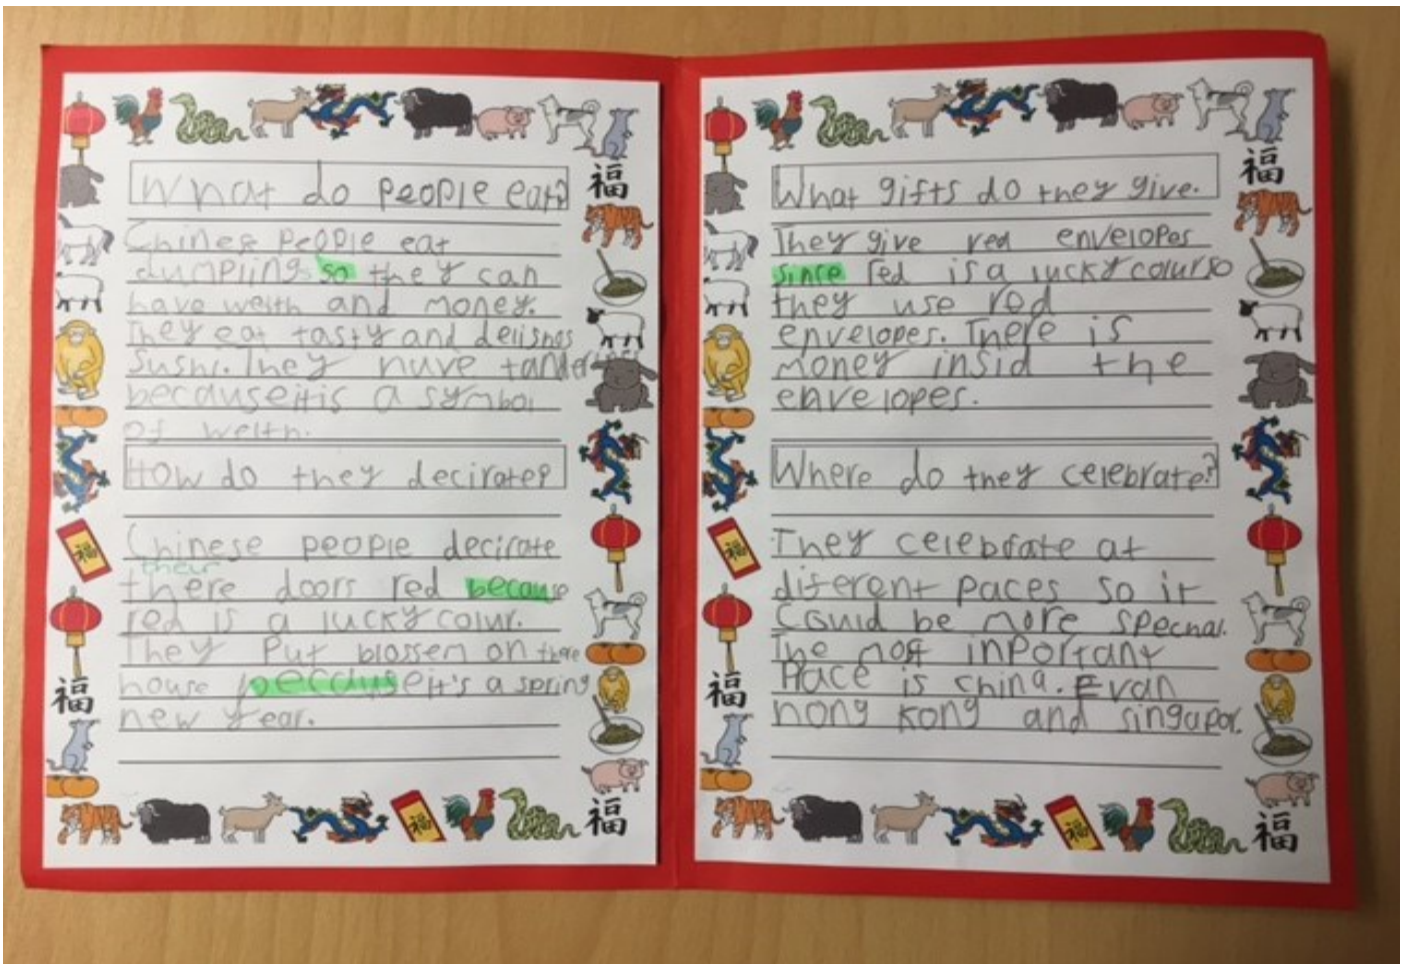 What do people eat?
Chinese people eat
dumplings so they can
have welth and money.
They eat tasty and
sushi. They have
because it is a symbol
of welth.
How do they decirate?
Chinese people decirate
their
there doors red because
red is a lucky colur.
They put blossem on there
house because it's a spring
new year.
What gifts do they give.
They give red envelopes
since red is a lucky colur so
they use red
envelopes. There is
money insid the
envelopes.
Where do they celebrate?
They celebrate at
diferent paces so it
Could be more
The most inportant
Place is china. Evan
hong kong and singapor.
福
福
福
福
福
福
福
福